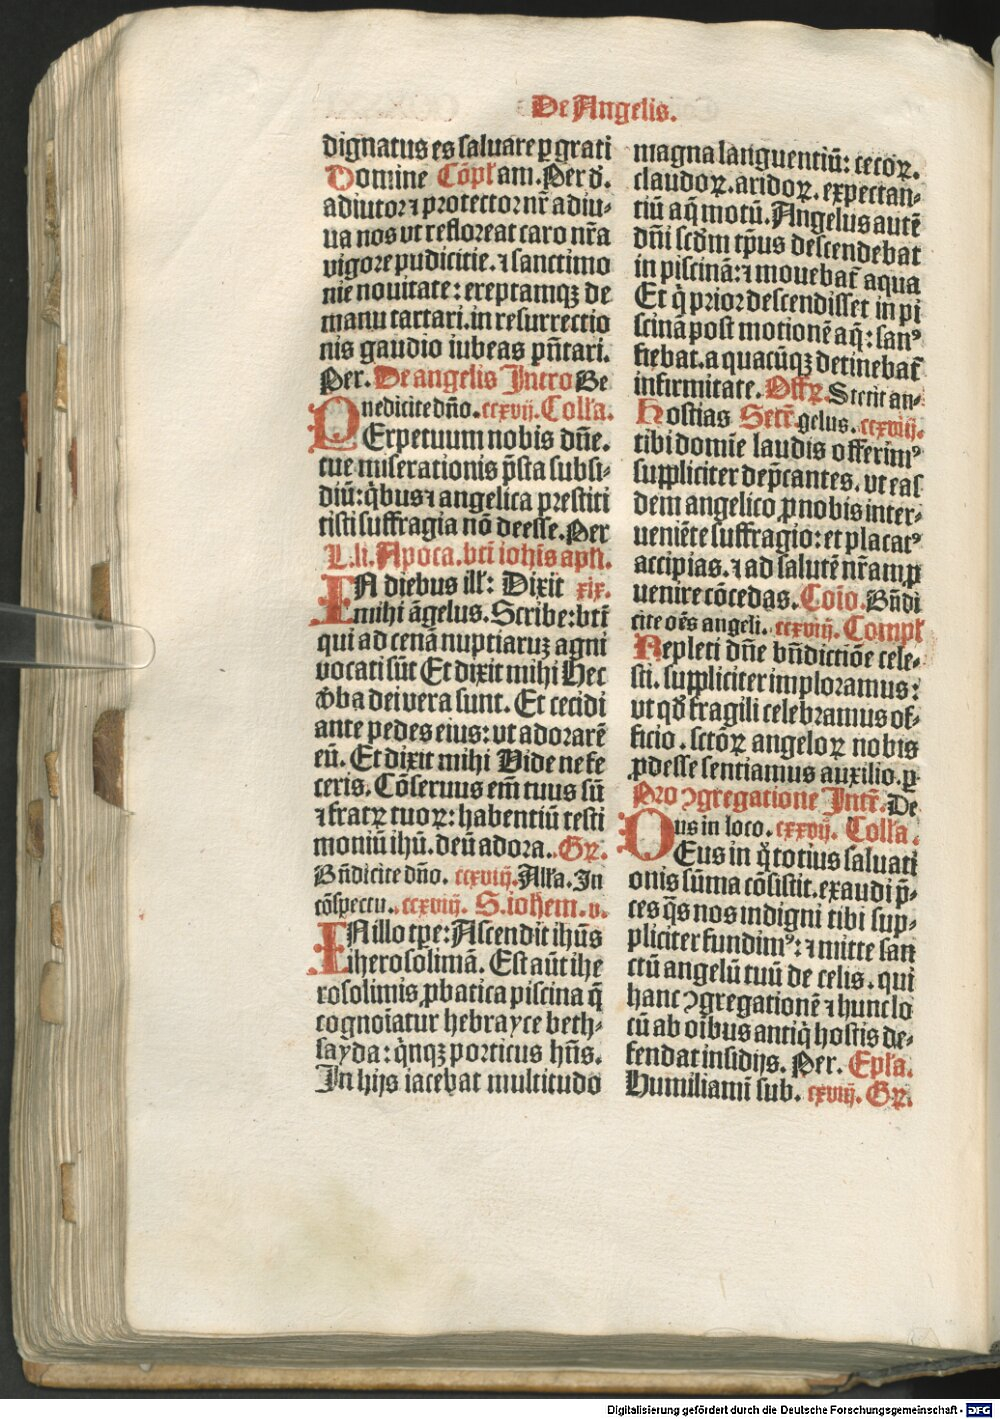 De Angelis.
dignatus es saluare ꝑ grati
Domine Cõpłam. Per d.
adiutor ⁊ protector nr̃ adiu⸗
ua nos vt refloreat caro nr̃a
vigore pudicitie. ⁊ sanctimo
nie nouitate: ereptamqꝫ de
manu tartari. in resurrectio
nis gaudio iubeas pñtari.
Per. De angelis Intro Be
nedicite dño. ccxvij. Colľa.
PErpetuum nobis dñe.
tue miserationis p̃sta subsi⸗
diũ: q̃bus ⁊ angelica prestiti
tisti suffragia nõ deesse. Per
L. li. Apoca. bti iohĩs apľi.
IN diebus ilľ: Dixit xix.
mihi ãgelus. Scribe: bti
qui ad cenã nuptiaruꝫ agni
vocati sũt Et dixit mihi Hec
v̾ba dei vera sunt. Et cecidi
ante pedes eius: vt adorarẽ
eũ. Et dixit mihi Vide ne fe
ceris. Cõseruus em̃ tuus sũ
⁊ fratꝝ tuoꝝ: habentiũ testi
moniũ ihũ. deũ adora. Gꝛ.
Bñdicite dño. ccxviij. Alľa. In
cõspectu. ccxviij. S. iohem. v.
IN illo tꝑe: Ascendit ihũs
iherosolimã. Est aũt ihe
rosolimis ꝓbatica piscina q̃
cognoĩatur hebrayce beth⸗
sayda: q̃nqꝫ porticus hñs.
In hijs iacebat multitudo
magna languentiũ: cecoꝝ.
claudoꝝ. aridoꝝ. expectan⸗
tiũ aq̃ motũ. Angelus autẽ
dñi scd̃m tp̃us descendebat
in piscinã: ⁊ mouebat᷑ aqua
Et q̃ prior descendisset in pi
scinã post motionẽ aq̃: sanꝰ
fiebat. a quacũqꝫ detinebat᷑
infirmitate. Offꝝ. Stetit an⸗
Hostias Secr̃. gelus. ccxviij.
tibi domĩe laudis offerimꝰ
suppliciter dep̃cantes. vt eas
dem angelico ꝓ nobis inter⸗
ueniẽte suffragio: et placatꝰ
accipias. ⁊ ad salutẽ nr̃am ꝓ
uenire cõcedas. Coĩo. Bñdi
cite oẽs angeli. ccxviij. Compł
Repleti dñe bñdictiõe cele⸗
sti. suppliciter imploramus:
vt qd̃ fragili celebramus of⸗
ficio. sctõꝝ angeloꝝ nobis
ꝓdesse sentiamus auxilio. ꝑ
Pro ꝯgregatione Intr̃. De
us in loco. cxxvij. Colľa.
DEus in q̃ totius saluati
onis sũma cõsistit. exaudi p̃⸗
ces q̃s nos indigni tibi sup⸗
pliciter fundimꝰ: ⁊ mitte san
ctũ angelũ tuũ de celis. qui
hanc ꝯgregationẽ ⁊ hunc lo
cũ ab oĩbus antiq̃ hostis de⸗
fendat insidijs. Per. Epľa.
Humiliami sub. cxviij. Gꝛ.
Digitalisierung gefördert durch die Deutsche Forschungsgemeinschaft - DFG